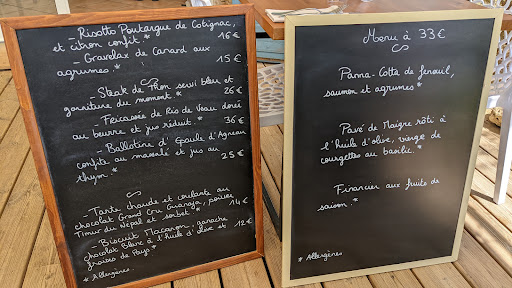 - Risotto Poutargue de Cotignac,
et citron confit.* 16€
- Gravelax de Canard aux
agrumes.* 15€
- Steak de Thon servi bleu et
garniture du moment.* 26€
- Fricassée de Ris de Veau doré
au beurre et jus réduit.* 36€
- Ballotine d'Epaule d'Agneau
confite au massalé et jus au
thym.* 25€
- Tarte chaude et coulante au
chocolat Grand Cru Guanaja, poivre
Timur du Népal et sorbet.* 14€
- Biscuit Macaron, ganache
chocolat Blanc à l'huile d'olive et 12€
fraises de Pays.*
* Allergènes.
Menu à 33€
Panna-Cotta de fenouil,
saumon et agrumes*
Pavé de Maigre rôti à
l'huile d'olive, vierge de
courgettes au basilic.*
Financier aux fruits de
saison.*
* Allergènes